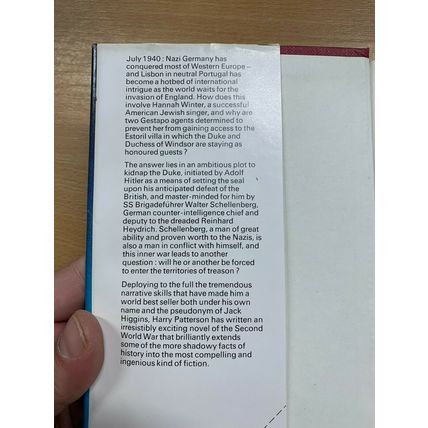 July 1940: Nazi Germany has
conquered most of Western Europe –
and Lisbon in neutral Portugal has
become a hotbed of international
intrigue as the world waits for the
invasion of England. How does this
involve Hannah Winter, a successful
American Jewish singer, and why are
two Gestapo agents determined to
prevent her from gaining access to the
Estoril villa in which the Duke and
Duchess of Windsor are staying as
honoured guests?
The answer lies in an ambitious plot to
kidnap the Duke, initiated by Adolf
Hitler as a means of setting the seal
upon his anticipated defeat of the
British, and master-minded for him by
SS Brigadeführer Walter Schellenberg,
German counter-intelligence chief and
deputy to the dreaded Reinhard
Heydrich. Schellenberg, a man of great
ability and proven worth to the Nazis, is
also a man in conflict with himself, and
this inner war leads to another
question: will he or another be forced
to enter the territories of treason?
Deploying to the full the tremendous
narrative skills that have made him a
world best seller both under his own
name and the pseudonym of Jack
Higgins, Harry Patterson has written an
irresistibly exciting novel of the Second
World War that brilliantly extends
some of the more shadowy facts of
history into the most compelling and
ingenious kind of fiction.